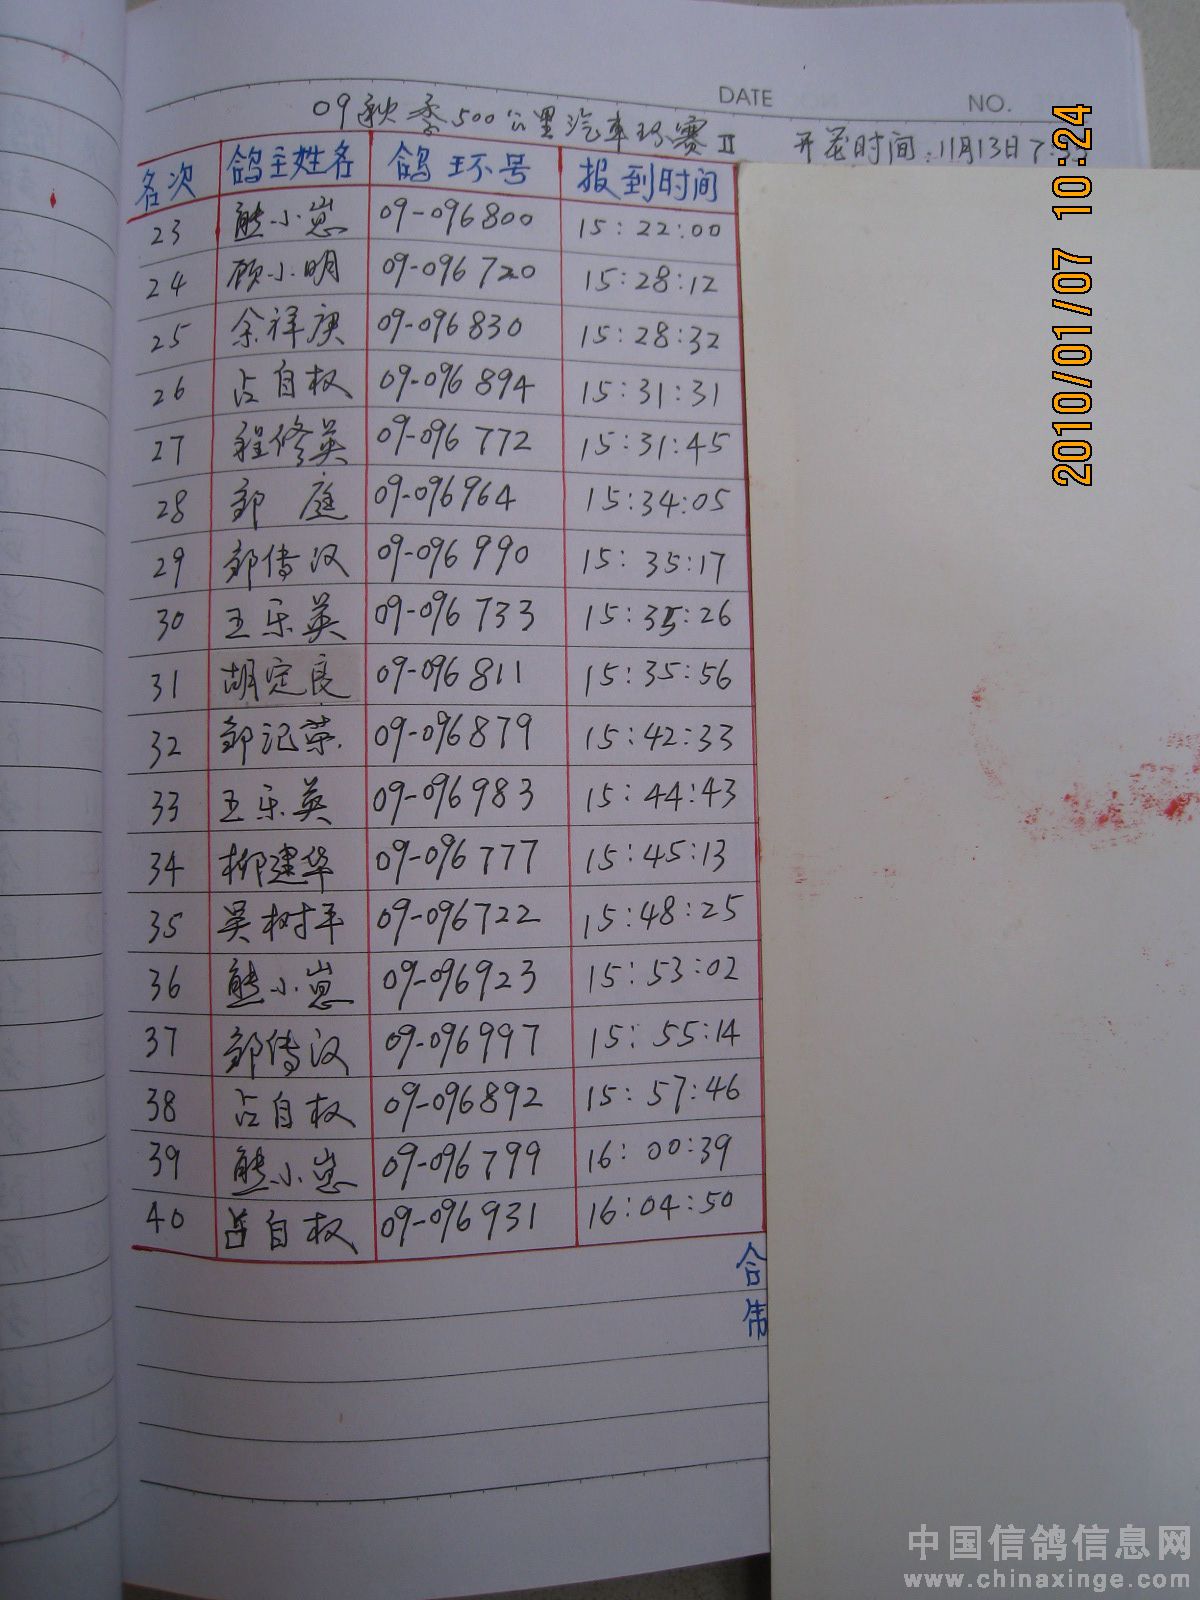 DATE NO.
09秋季500公里汽车环赛II 开笼时间:11月13日7:
名次 鸽主姓名 鸽环号 报到时间
23 熊小崽 09-096800 15:22:00
24 顾小明 09-096720 15:28:12
25 余祥庚 09-096830 15:28:32
26 占自权 09-096894 15:31:31
27 程修英 09-096772 15:31:45
28 邹庭 09-096964 15:34:05
29 邹传汉 09-096990 15:35:17
30 王乐英 09-096733 15:35:26
31 胡定良 09-096811 15:35:56
32 邹记荣 09-096879 15:42:33
33 王乐英 09-096983 15:44:43
34 柳建华 09-096777 15:45:13
35 吴树平 09-096722 15:48:25
36 熊小崽 09-096923 15:53:02
37 邹传汉 09-096997 15:55:14
38 占自权 09-096892 15:57:46
39 熊小崽 09-096799 16:00:39
40 占自权 09-096931 16:04:50
合
伟
2010/01/07 10:24
中国信鸽信息网
www.chinaxinge.com